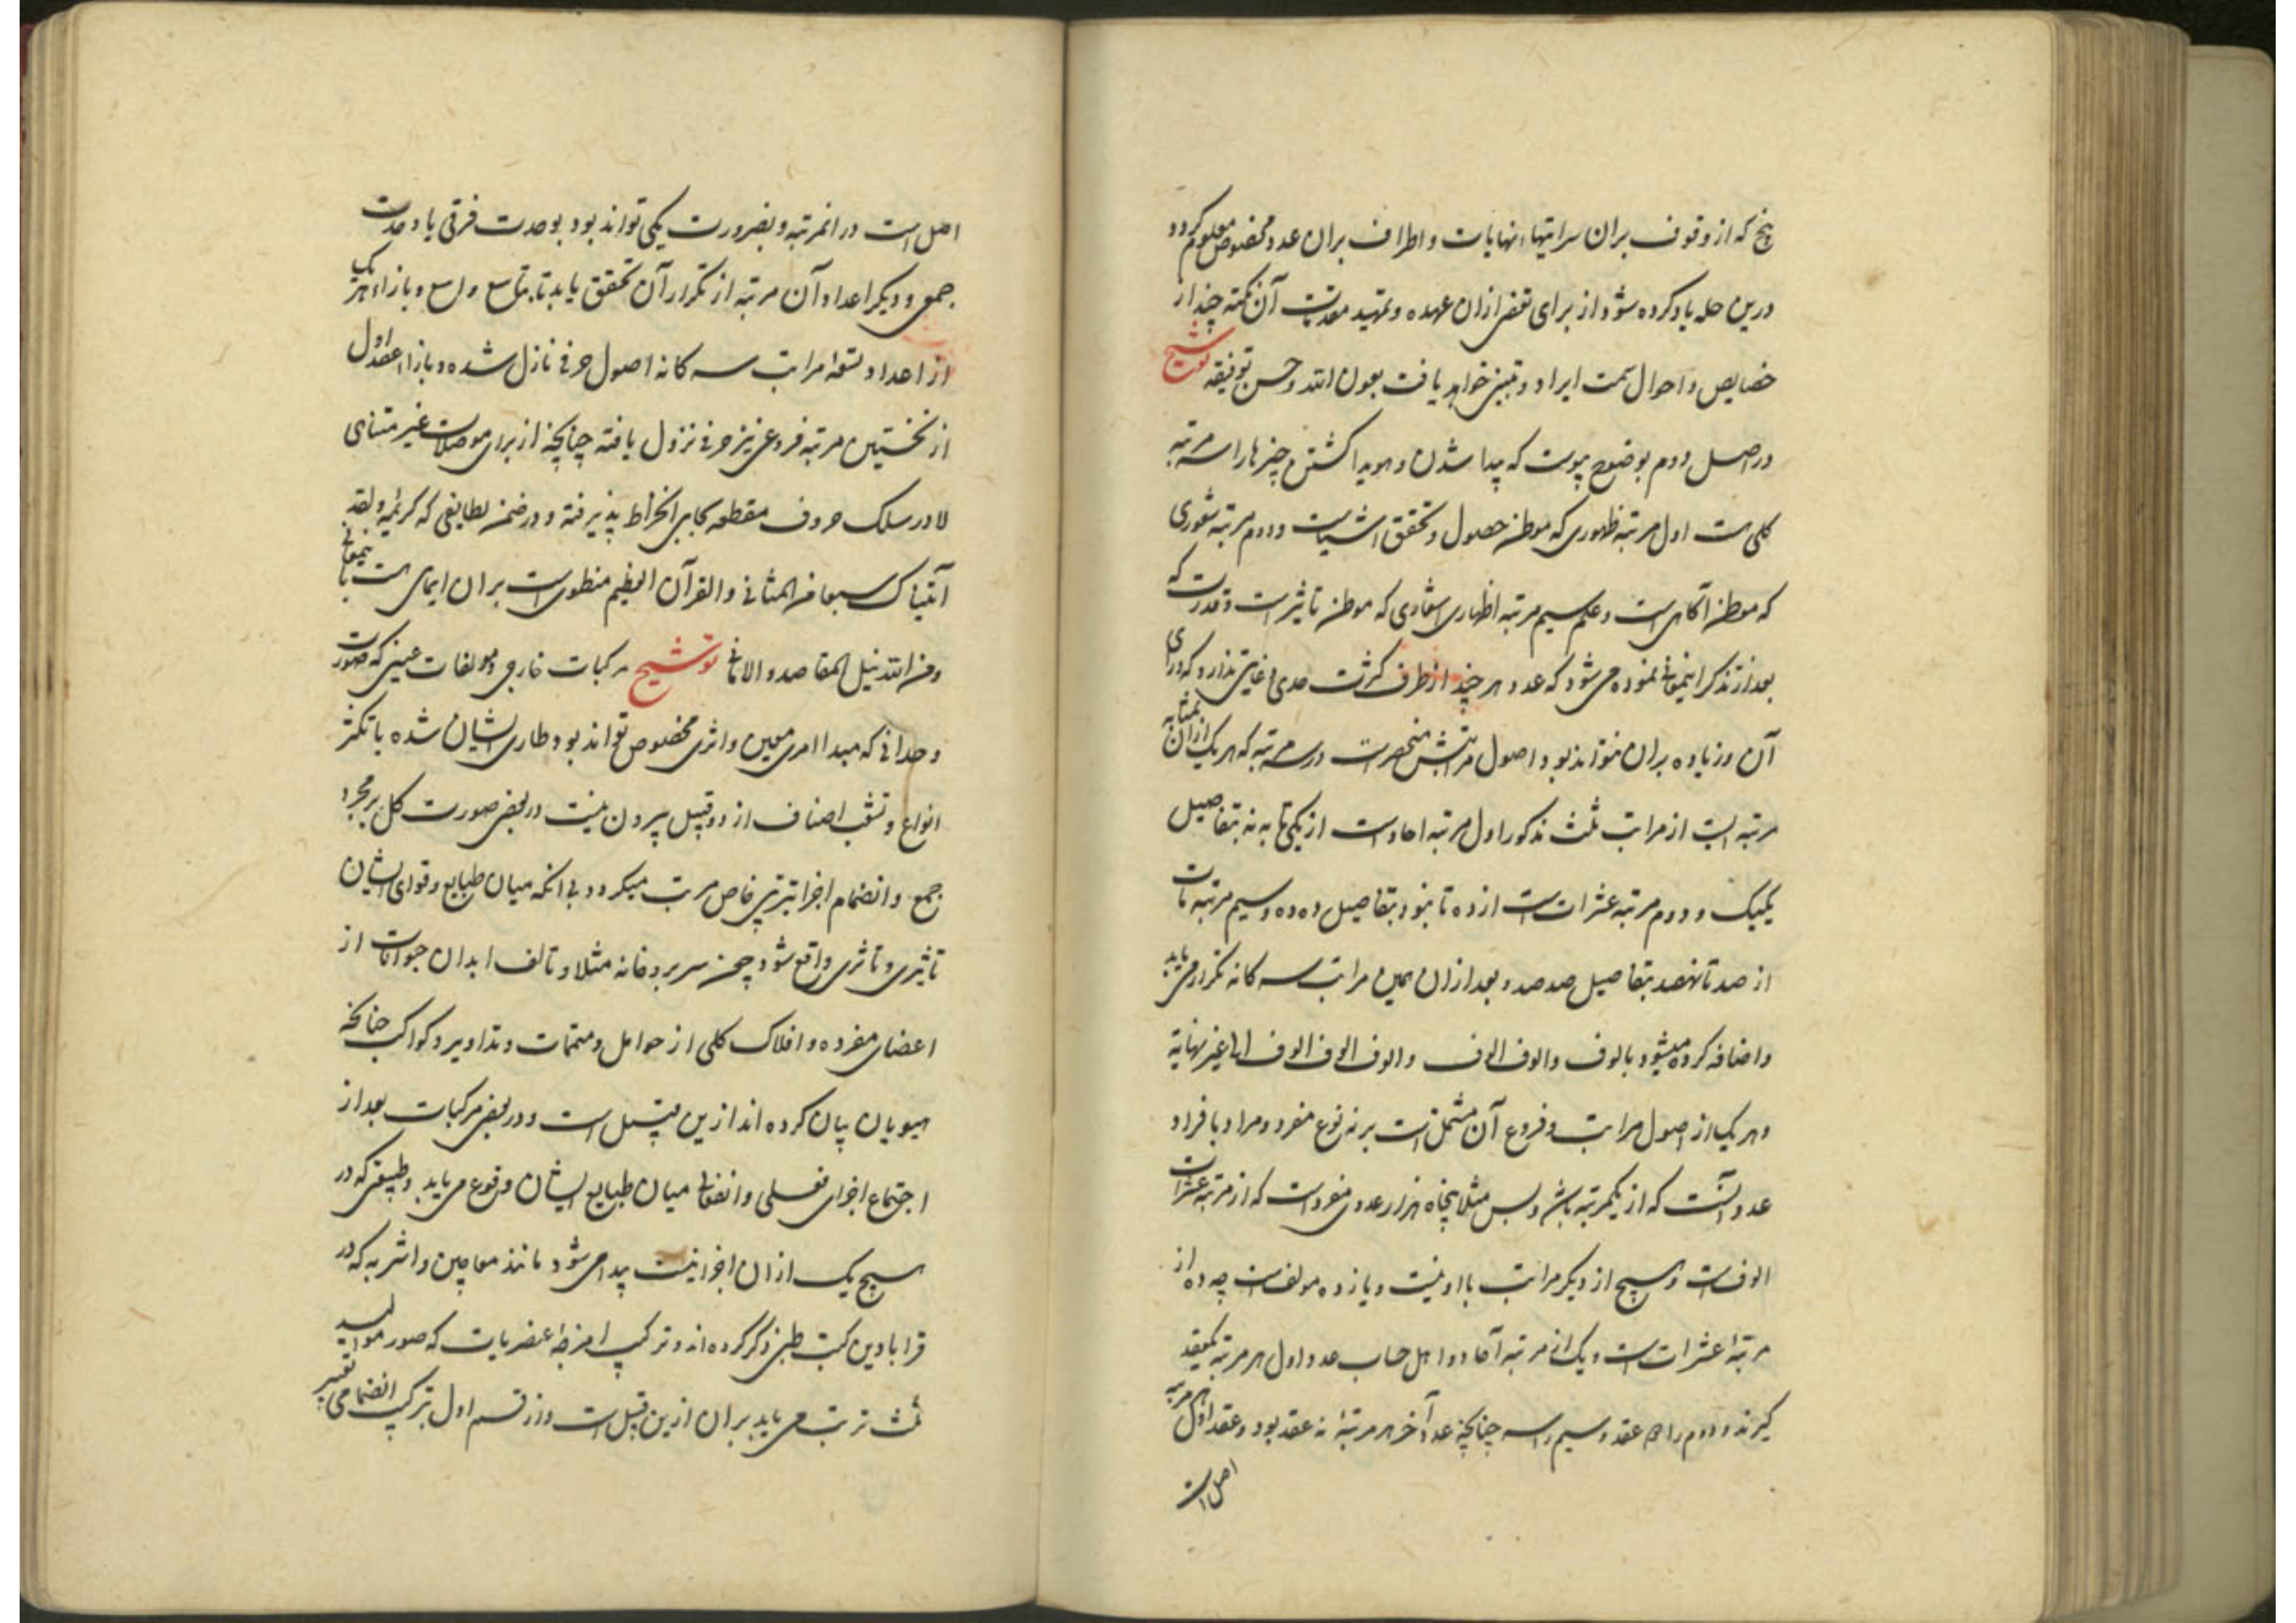 پنج که از وقوف بران سرایتها و نهایات و اطراف بران عدد مخصوص معلوم گردد
درین حله یاد کرده شود از برای تفصی ازان عهده و تمهید مقدمات آن نکته چند از
خصایص و احوال سمت ایراد و تبیین خواهد یافت بعون الله و حسن توفیقه توشیح
در اصل دوم بوضوح پیوست که پیدا شدن و هویدا گشتن چیزها را سه مرتبه
کلی است اول مرتبه ظهوری که موطن حصول و تحقق اشیاست و دوم مرتبه شعوری
که موطن آگاهی است و علم سیم مرتبه اظهاری اشعاری که موطن تاثیر است و قدرت که
بعد از تذکر اینمعانی نموده می شود که عدد هر چند از طرف کثرت حدی و غایتی ندارد که ورای
آن و زیاده بران نتواند بود اصول مراتبش منحصر است در سه مرتبه که هر یک ازان بمثابه
مرتبه ایست از مراتب ثلث مذکور اول مرتبه احاد است از یکی تا به نه بتفاصیل
یکیک و دوم مرتبه عشرات است از ده تا نود بتفاصیل ده ده و سیم مرتبه مآت
از صد تا نهصد بتفاصیل صد صد و بعد ازان همین مراتب سه کانه تکرار می یابد
و اضافه کرده میشود بالوف و الوف الوف و الوف الوف الوف الی غیر نهایة
و هر یک از اصول مراتب و فروع آن مشتمل است بر نه نوع مفرد و مراد با فراد
عدد آنست که از یکمرتبه باشد و بس مثلا پنجاه هزار عددی مفرد است که از مرتبه عشرات
الوف است و هیچ از دیگر مراتب با او نیست و یازده مولف است چه ده از
مرتبهٔ عشرات است و یک از مرتبه آحاد و اهل حساب عدد اول هر مرتبه یکعقد
گیرند و دوم را دو عقد و سیم را سه چنانچه عدد آخر هر مرتبهٔ نه عقد بود و عقد اول هر مرتبه
اصل است
اصل است در انمرتبه و بضرورت یکی تواند بود بوحدت فرقی یا وحدت
جمعی و دیگر اعداد آن مرتبه از تکرار آن تحقق یابد تا بتاسع و بازاء هر یک
از اعداد تسعهٔ مراتب سه کانه اصول حرفی نازل شده و بازاء عقد اول
از نخستین مرتبه فروعی نیز حرفی نزول یافته چنانچه از برای موصلات غیر متناهی
لا در سلک حروف مقطعه کجایی انخراط پذیرفته و در ضمن لطایفی که کریمهٔ و لقد
آتیناک سبعا من المثانی و القرآن العظیم منطوی است بران ایمای است باینمعانی
و من الله نیل المقاصد و الامانی توشیح مرکبات خارجی و مولفات عینی که صورت
وحدانی که مبدا امری معین و اثری مخصوص تواند بود طاری ایشان شده با تکثر
انواع و تشعب اصناف از دو قبیل بیرون نیست در بعضی صورت کل بر مجرد
جمع و انضمام اجزا بترتیبی خاص مرتب میگردد بی انکه میان طبایع و قوای ایشان
تاثیری و تاثری واقع شود چون سریر و خانه مثلا و تالف ابدان حیوانات از
اعضای مفرده و افلاک کلی از حوامل و متممات و تداویر و کواکب چنانچه
هیویان بیان کرده اند ازین قبیل است و در بعضی مرکبات بعد از
اجتماع اجزای فعلی و انفعالی میان طبایع ایشان وقوع می یابد و طبیعتی که در
هیچ یک ازان اجزا نیست پیدا می شود مانند معاجین و اشربه که در
قرابادین کتب طبی ذکر کرده اند و ترکیب امزجهٔ عنصریات که صور موالید
ثلث ترتب می یابد بران ازین قبیل است و از قسم اول بترکیب انضمامی تعبیر